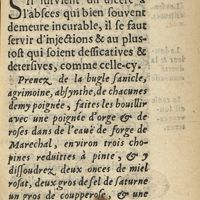 S'il survient un ulcere à
l'absces qui bien souvent
demeure incurable, il se faut
servir d'injections & au plus-
tost qui soient dessicatives &
detersives, comme celle-cy.
Prenez de la bugle sanicle,
agrimoine, absynthe, de chacunes
demy poignée, faites les bouillir
avec une poignée d'orge & de
roses dans de l'eauë de forge de
Marechal, environ trois cho-
pines reduittes à pinte, & y
dissoudrez deux onces de miel
rosat, deux gros de sel de saturne
un gros de coupperose, & une